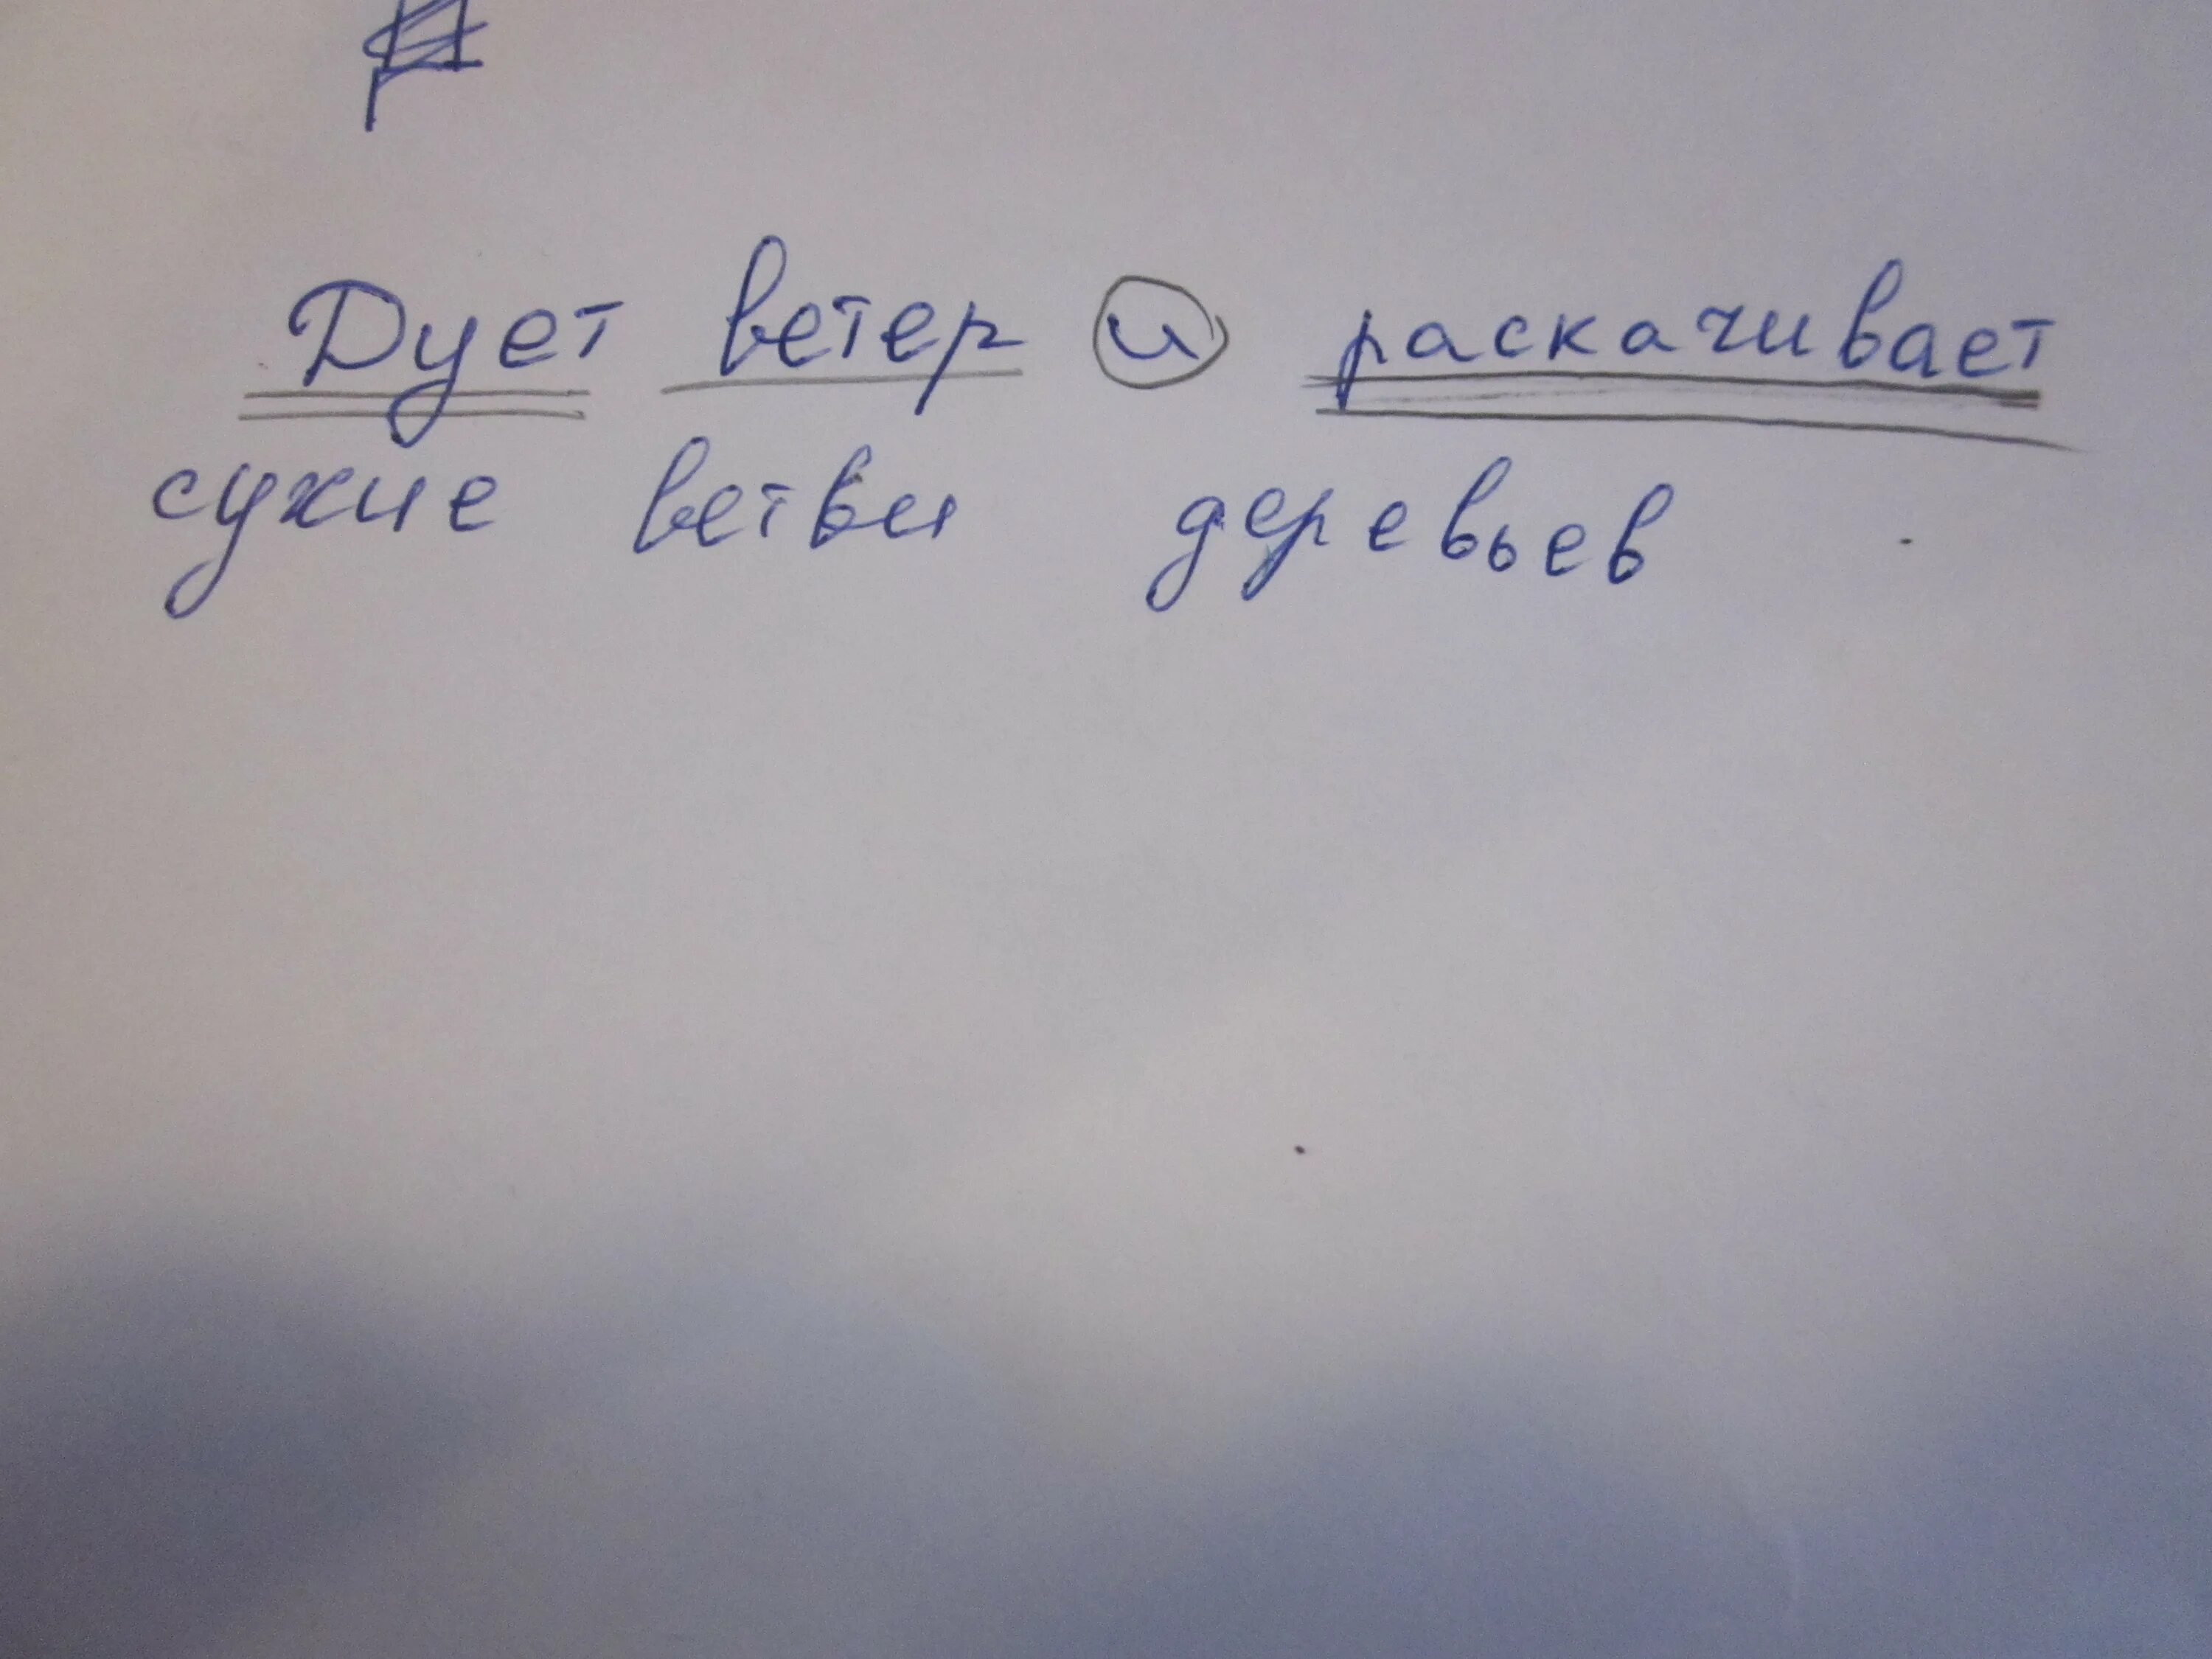 Дует ветер и раскачивает
сухие ветви деревьев